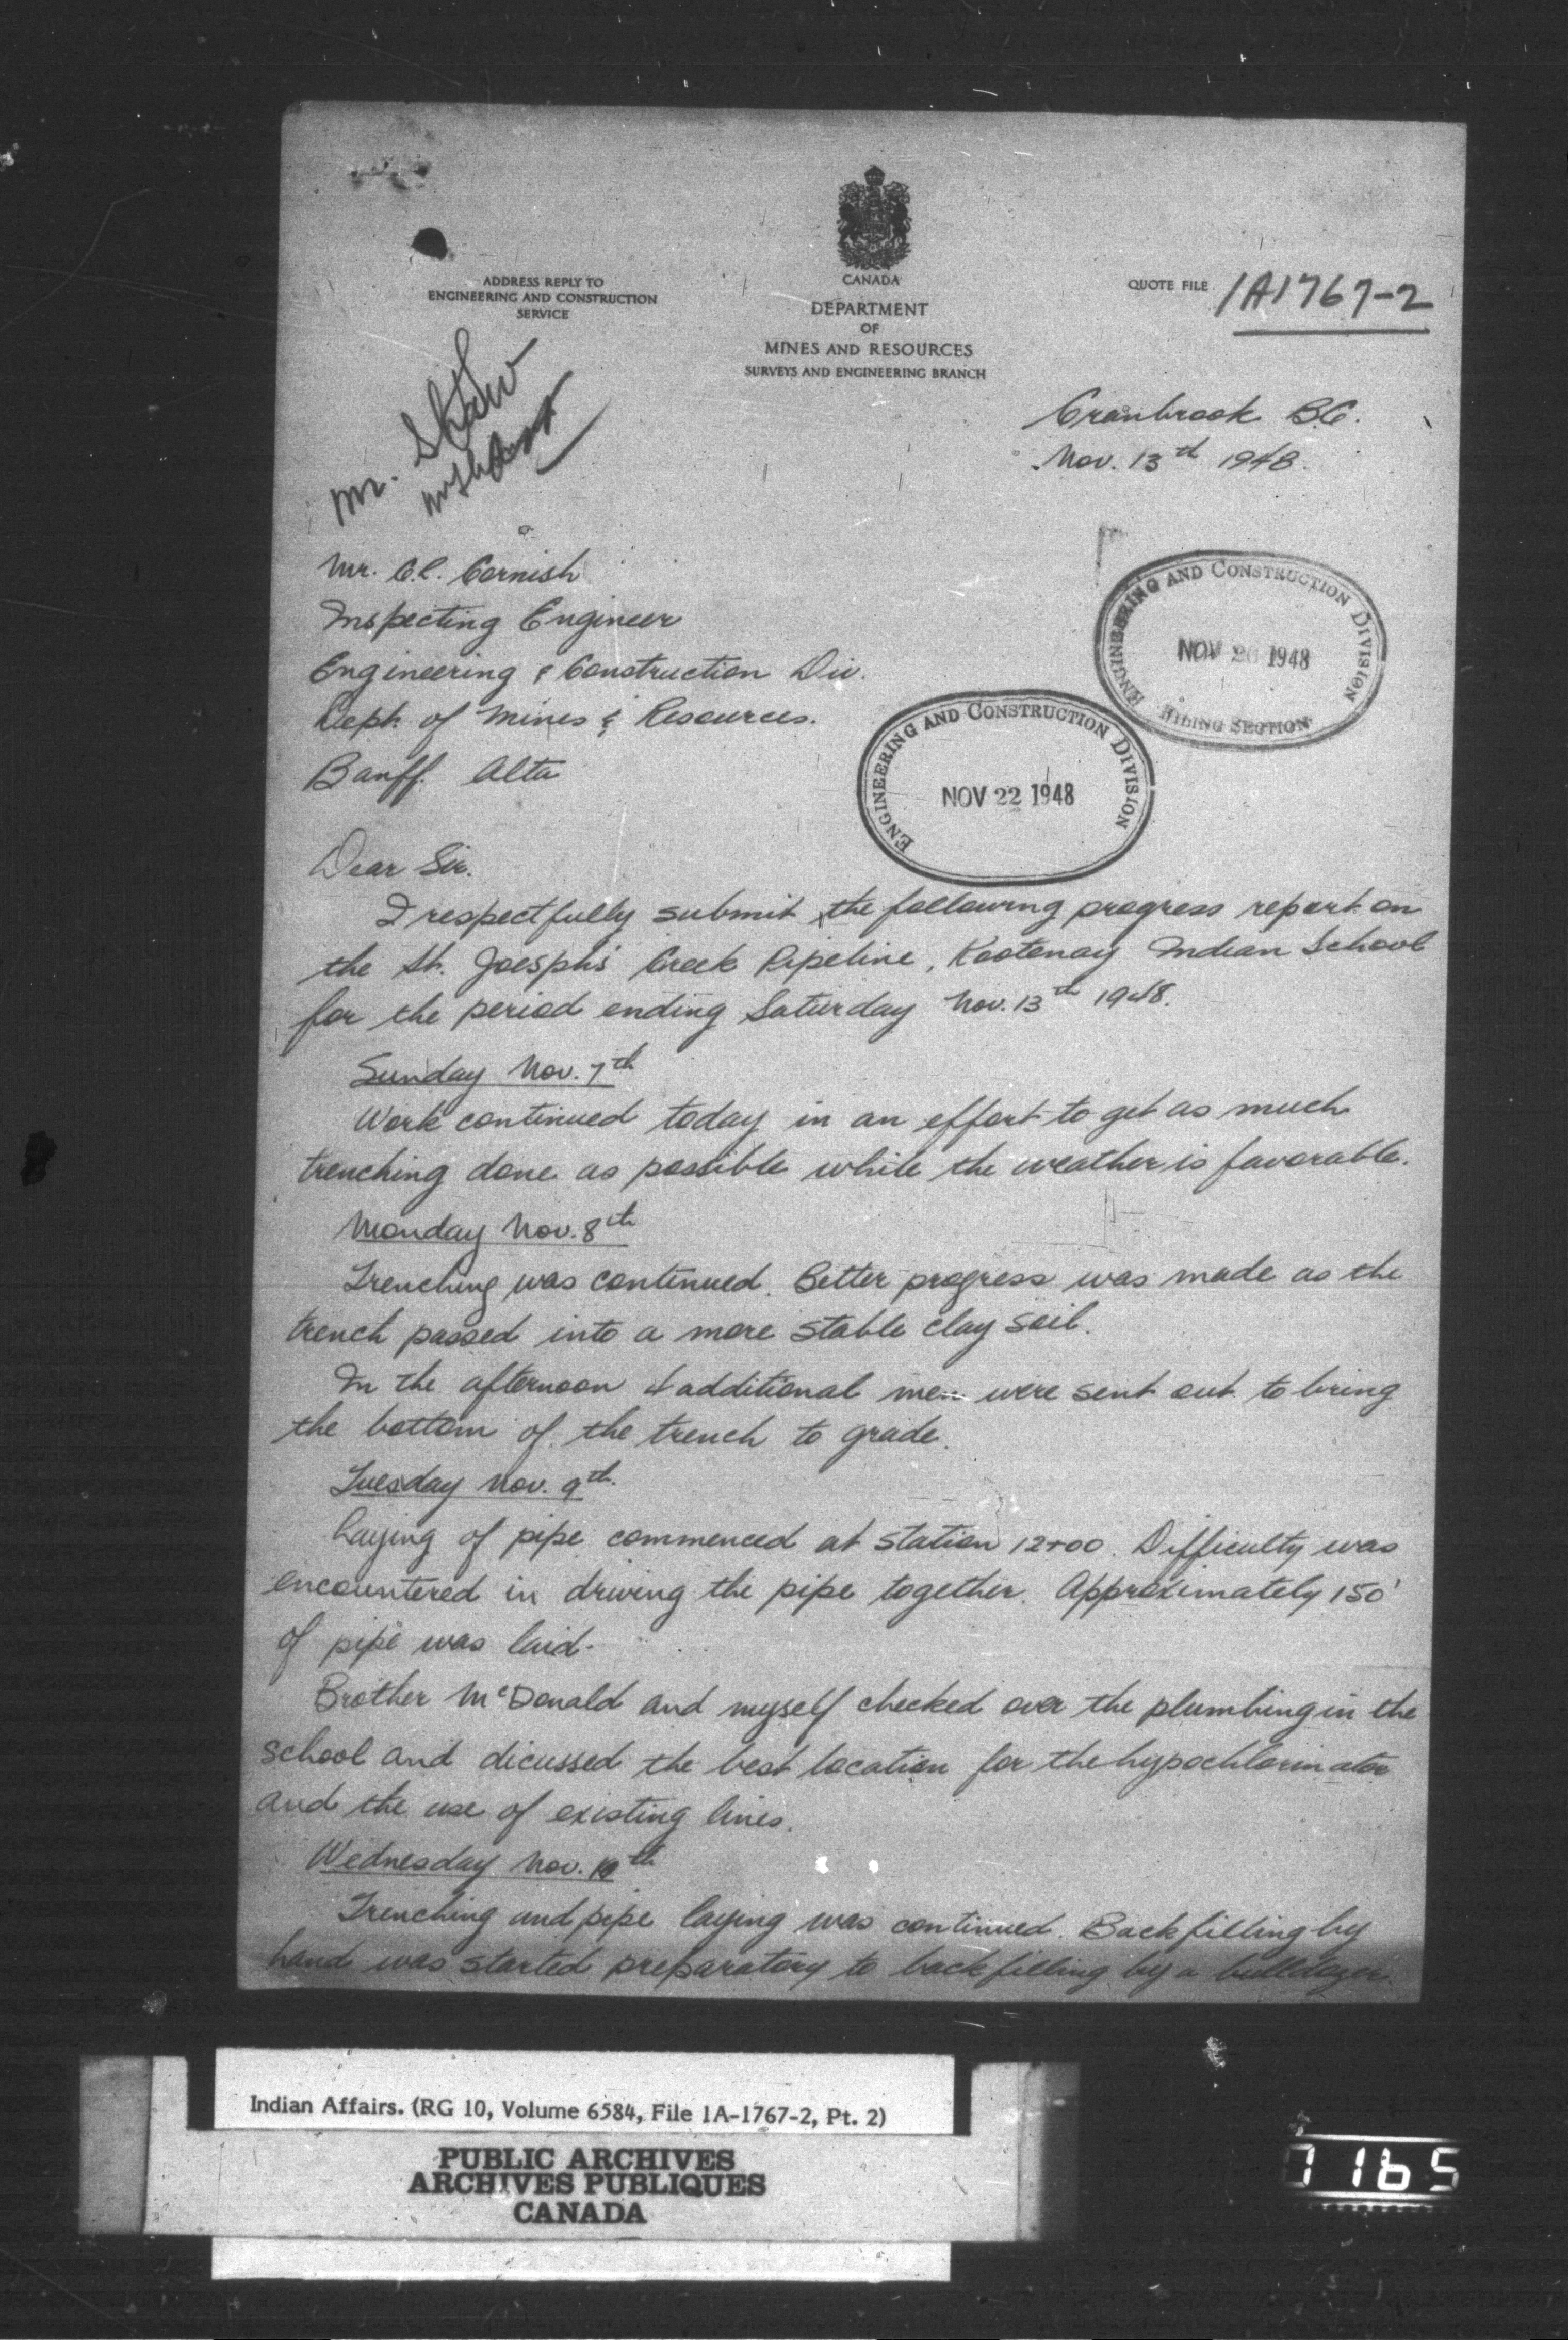 ADDRESS REPLY TO
ENGINEERING AND CONSTRUCTION
SERVICE
CANADA
DEPARTMENT
OF
MINES AND RESOURCES
SURVEYS AND ENGINEERING BRANCH
QUOTE FILE 1A1767-2
Mr. Shaw
Cranbrook B.C.
Nov. 13th 1948.
Mr. C.L. Cornish
Inspecting Engineer
Engineering & Construction Div.
Dept. of Mines & Resources.
Banff. Alta
ENGINEERING AND CONSTRUCTION DIVISION
NOV 26 1948
FILING SECTION
ENGINEERING AND CONSTRUCTION DIVISION
NOV 22 1948
Dear Sir.
I respectfully submit the following progress report on
the St. Joesph's Creek Pipeline, Kootenay Indian School
for the period ending Saturday Nov. 13th 1948.
Sunday Nov. 7th
Work continued today in an effort to get as much
trenching done as possible while the weather is favorable.
Monday Nov. 8th
Trenching was continued. Better progress was made as the
trench passed into a more stable clay soil.
In the afternoon 4 additional men were sent out to bring
the bottom of the trench to grade.
Tuesday Nov. 9th.
Laying of pipe commenced at station 12+00. Difficulty was
encountered in driving the pipe together. Approximately 150'
of pipe was laid.
Brother McDonald and myself checked over the plumbing in the
school and dicussed the best location for the hypochlorinator
and the use of existing lines.
Wednesday Nov. 10th
Trenching and pipe laying was continued. Backfilling by
hand was started preparatory to backfilling by a bulldozer.
Indian Affairs. (RG 10, Volume 6584, File 1A-1767-2, Pt. 2)
PUBLIC ARCHIVES
ARCHIVES PUBLIQUES
CANADA
7165